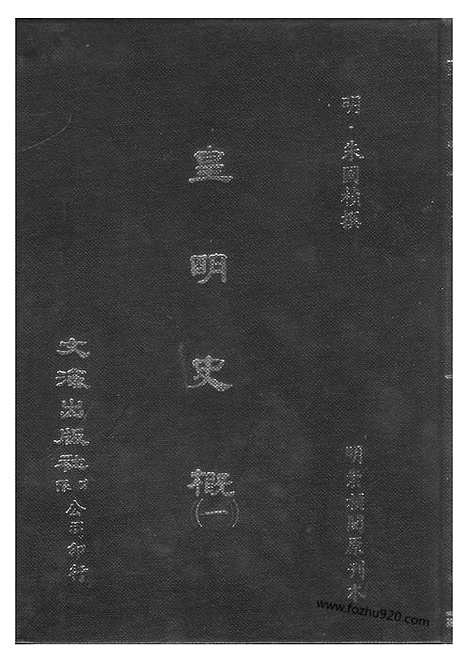 明·朱國楨撰
明崇禎間原刊本
皇明史概(一)
文海出版社有限公司印行
www.fozhu920.com